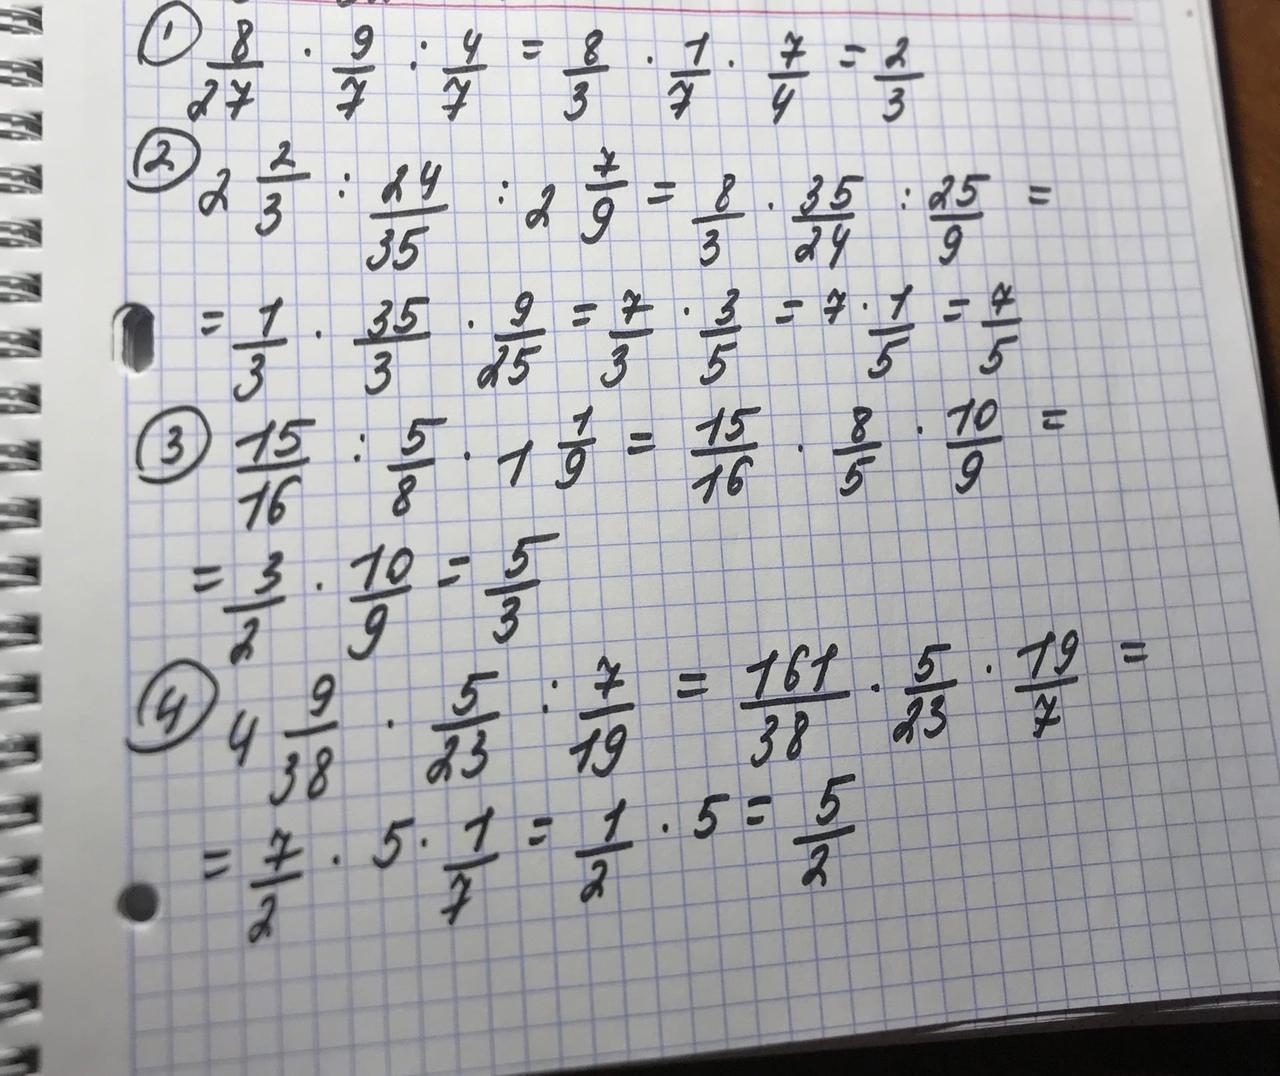 ① 8/27 · 9/7 : 4/7 = 8/3 · 1/7 · 7/4 = 2/3
② 2 2/3 : 24/35 : 2 7/9 = 8/3 · 35/24 : 25/9 =
= 1/3 · 35/3 · 9/25 = 7/3 · 3/5 = 7 · 1/5 = 7/5
③ 15/16 : 5/8 · 1 1/9 = 15/16 · 8/5 · 10/9 =
= 3/2 · 10/9 = 5/3
④ 4 9/38 · 5/23 : 7/19 = 161/38 · 5/23 · 19/7 =
= 7/2 · 5 · 1/7 = 1/2 · 5 = 5/2